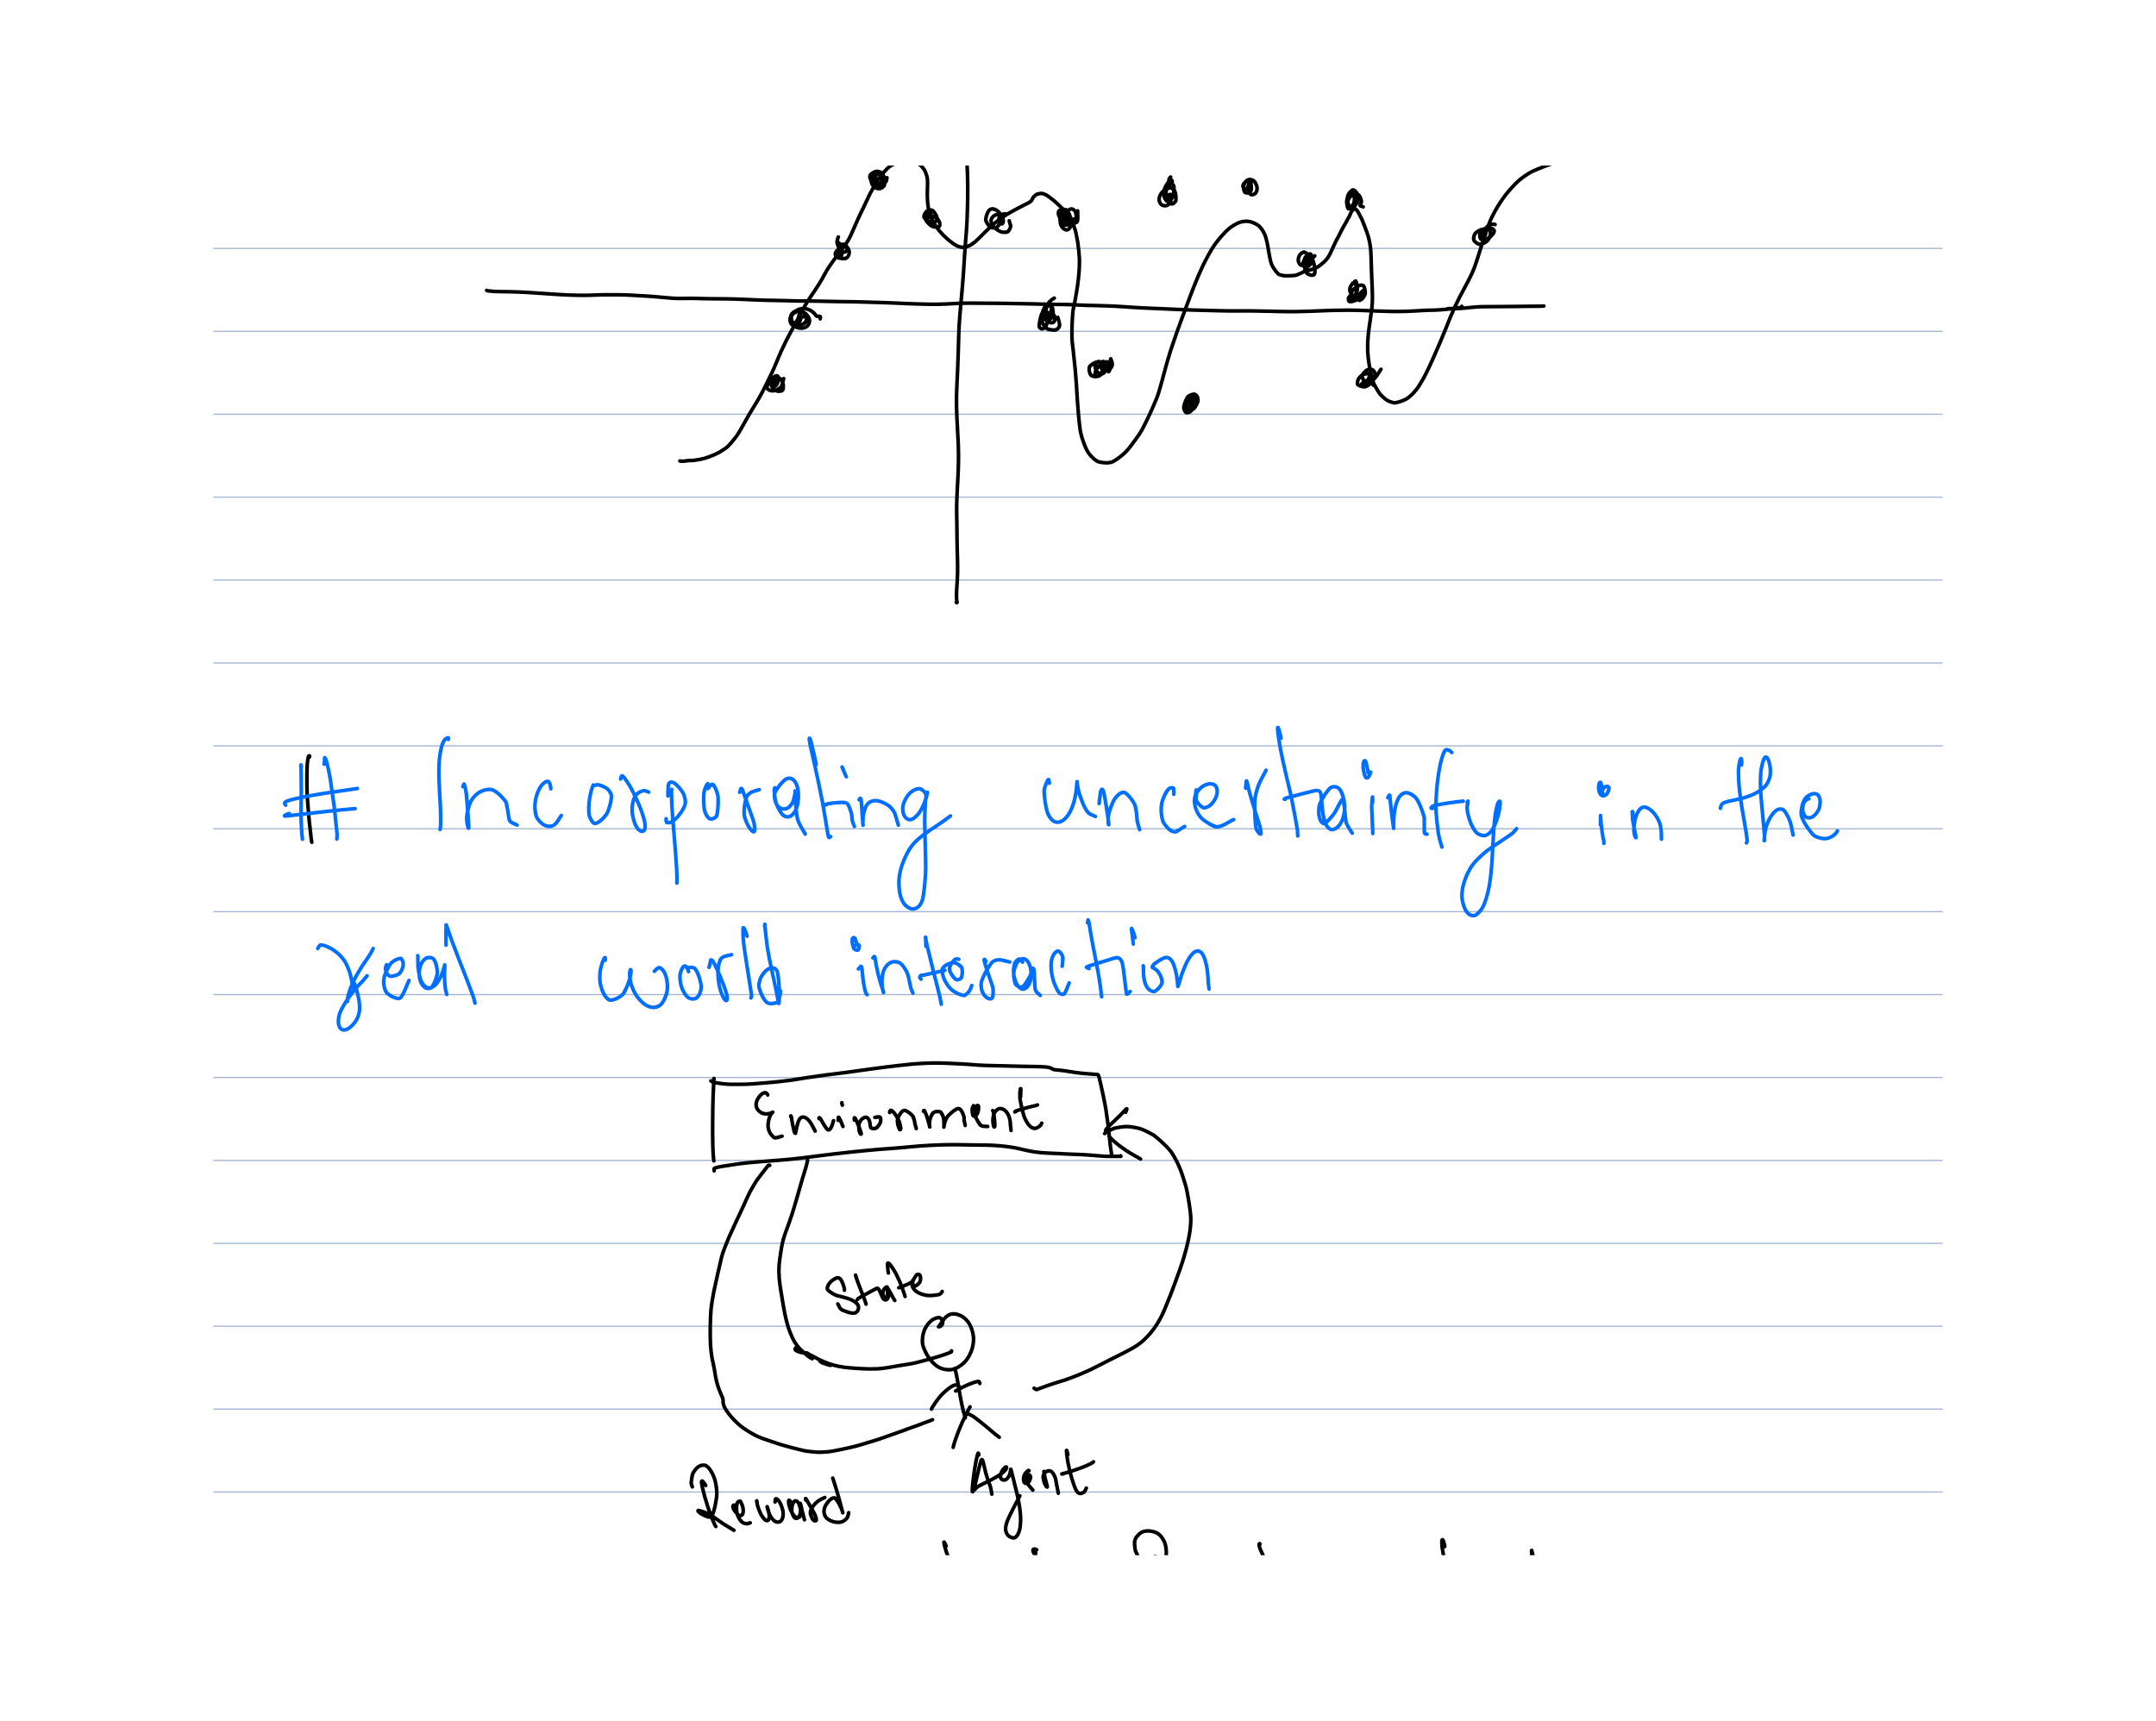 # Incorporating uncertainty in the
real world interaction
Environment
State
Agent
Reward